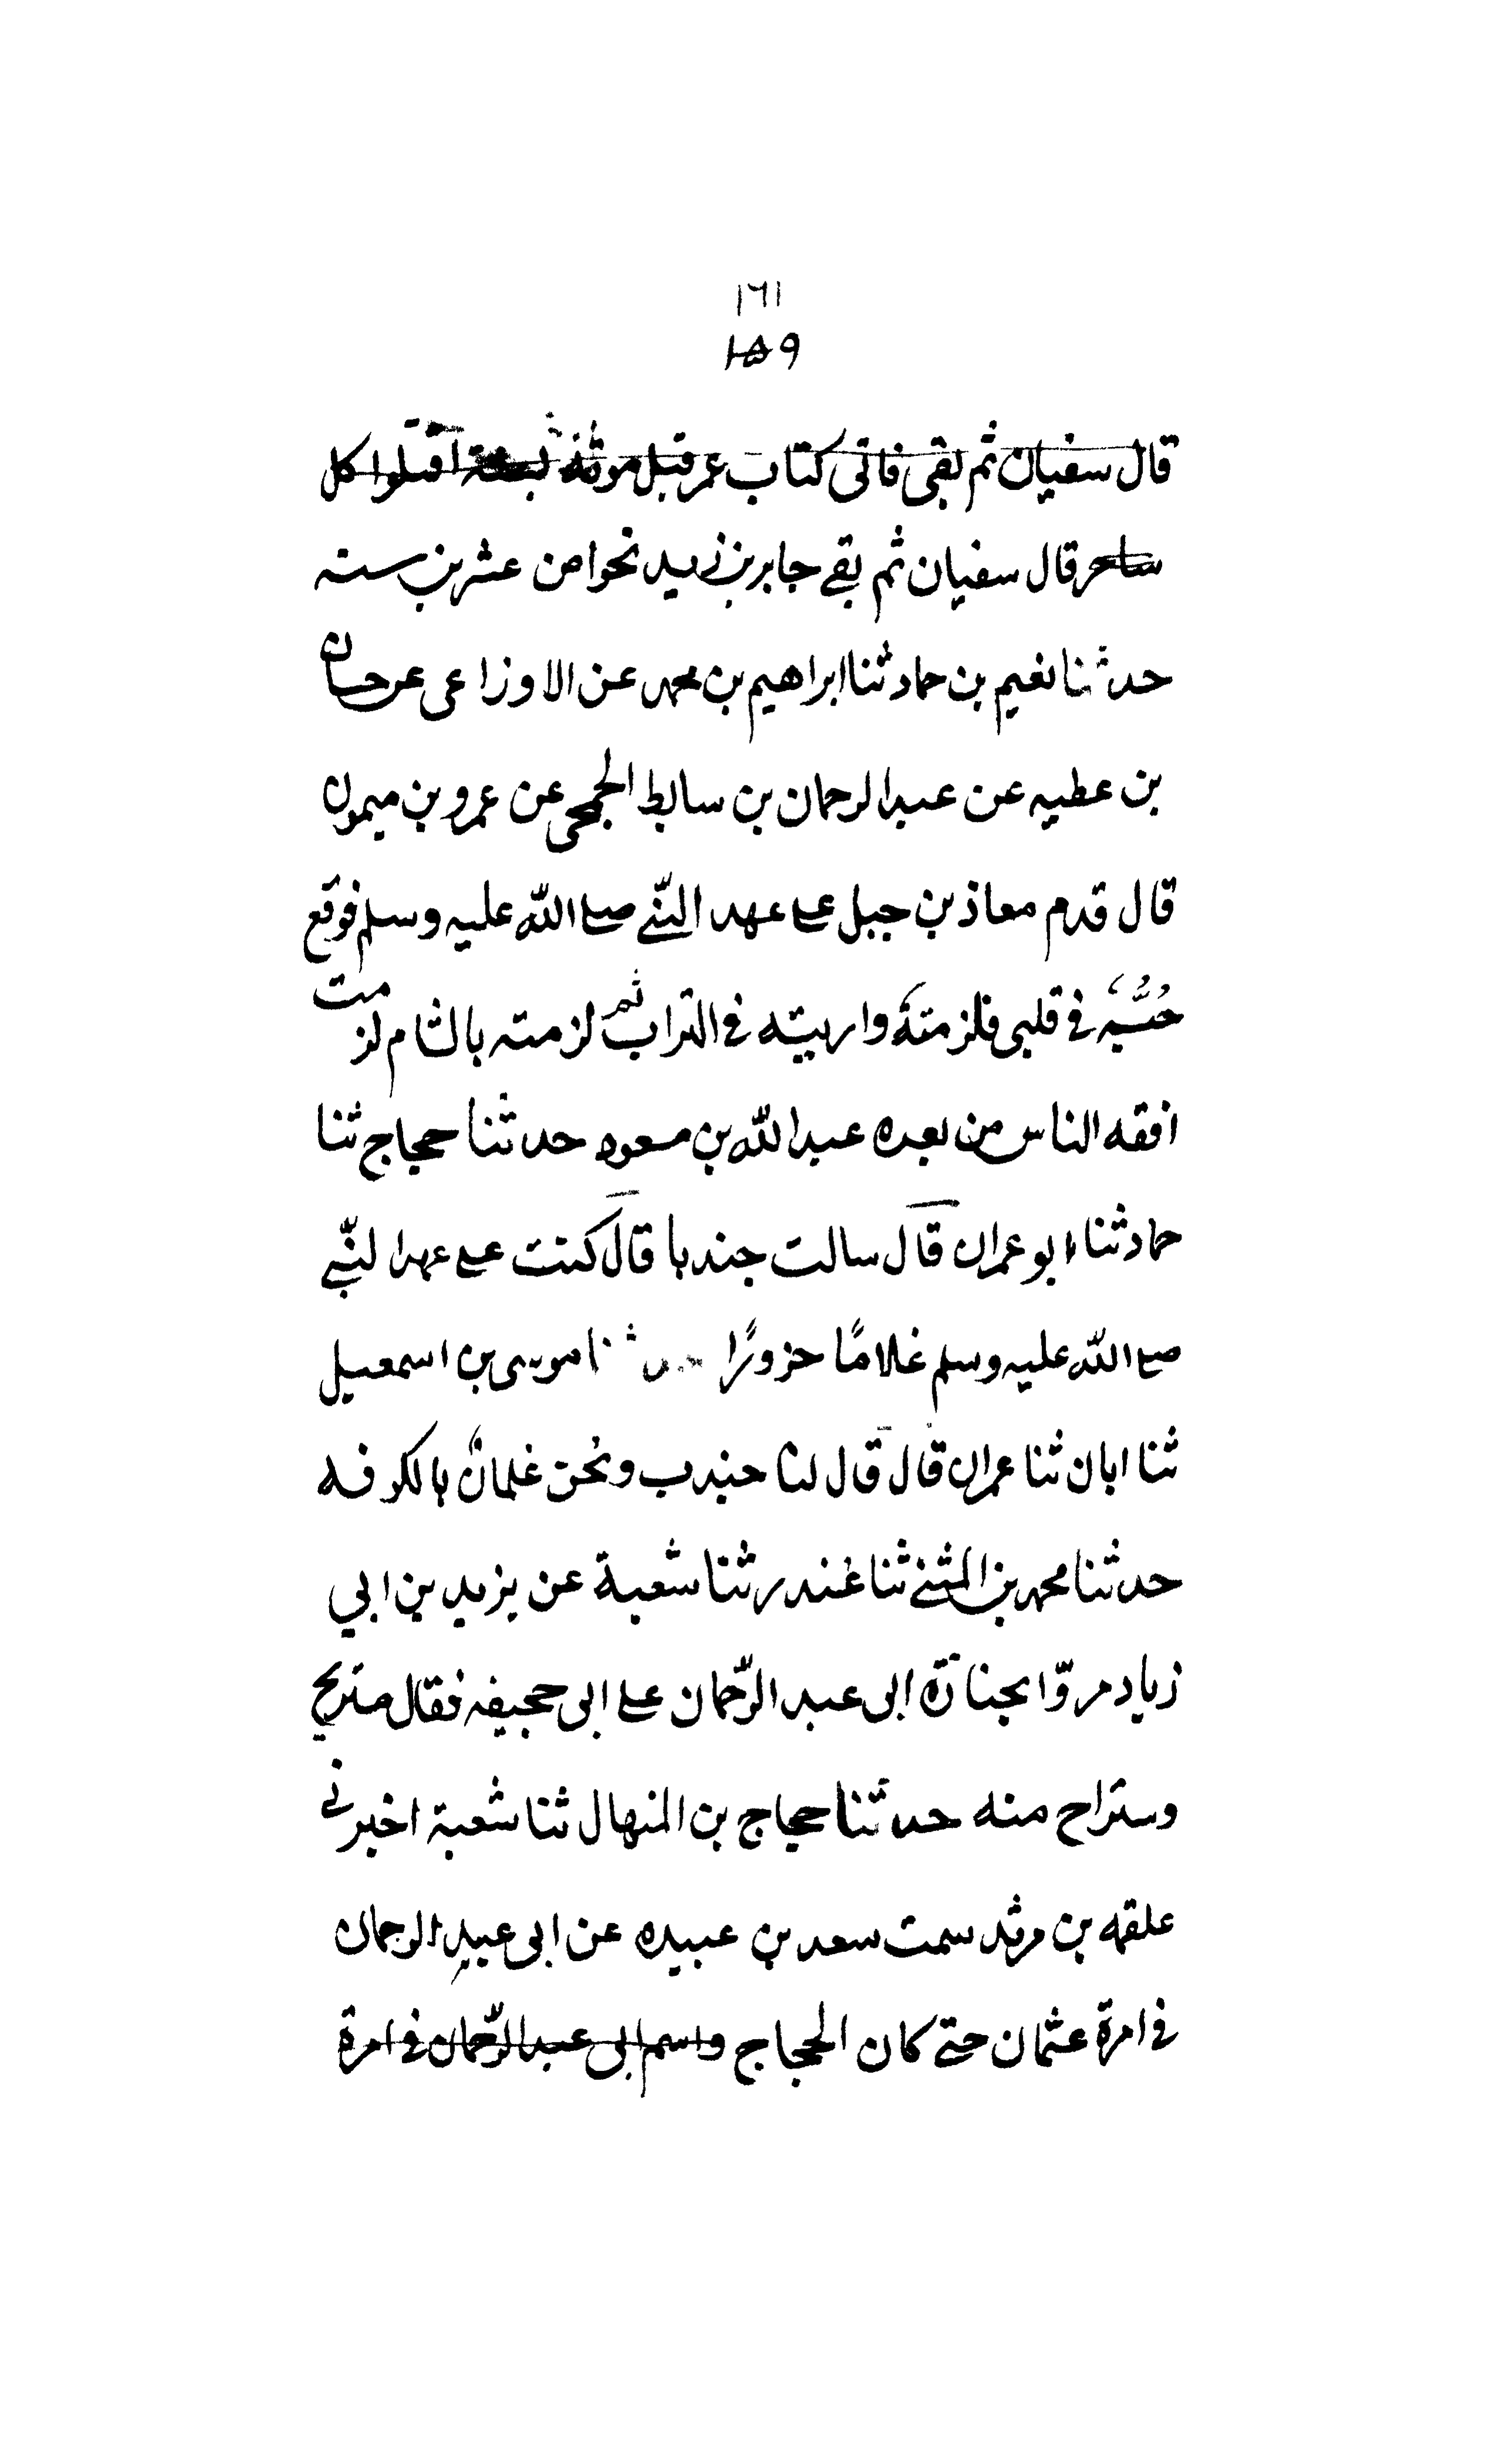 ١٦١
١٥٩
قال سفيان ثم بقى فاتى كتاب عمر قبل موته بسنة اقتلوا كل
ساحر قال سفيان ثم بقے جابر بن زيد نحوا من عشرين سنه
حدثنا نعيم بن حماد ثنا ابراهيم بن محمد عن الاوزاعى عن حسان
بن عطيه عن عبد الرحمان بن سابط الجمحى عن عمرو بن ميمون
قال قدم معاذ بن جبل على عهد النّبى صلى اللّه عليه وسلم فوقع
حُبُّهُ فى قلبى فلزمتهُ واريته فى التراب ثم لزمته بالشام لزمت
افقه الناس من بعده عبد اللّٰه بن مسعود حدثنا حجاج ثنا
حماد ثنا ابو عمران قال سالت جندبا قال كنت على عهد النّبى
صلى اللّٰه عليه وسلم غلامًا حزورًا حدثنا موسى بن اسمعيل
ثنا ابان ثنا عمران قال قال لنا جندب ونحن غلمانٌ بالكوفه
حدثنا محمد بن المثنى ثنا غندر ثنا شعبة عن يزيد بن ابي
زياد مروّا بجنازة ابى عبد الرّحمان على ابى حجيفه فقال ستريح
وستراح منه حدثنا حجاج بن المنهال ثنا شعبة اخبرنى
علقمه بن مرثد سمت سعد بن عبيده عن ابى عبد الرحمان
فى امرة عثمان حتى كان الحجاج واسم ابى عبد الرّحمان فى امرة